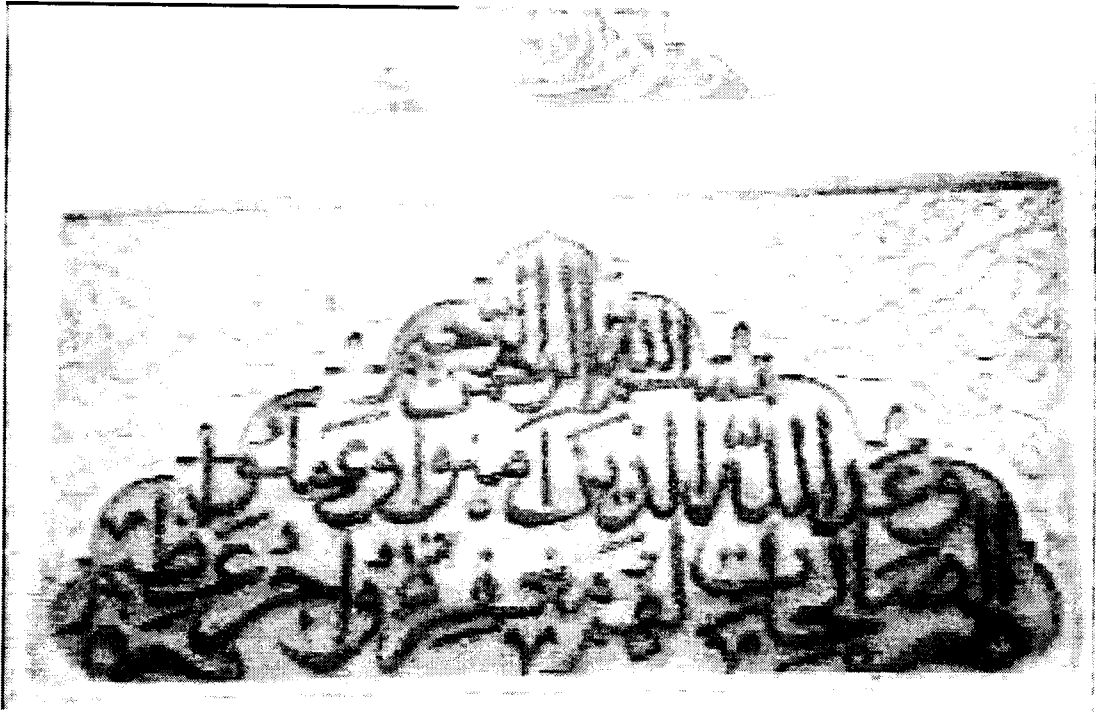 بسم الله الرحمن الرحيم
وعد الله الذين آمنوا وعملوا
الصالحات لهم مغفرة وأجر عظيم